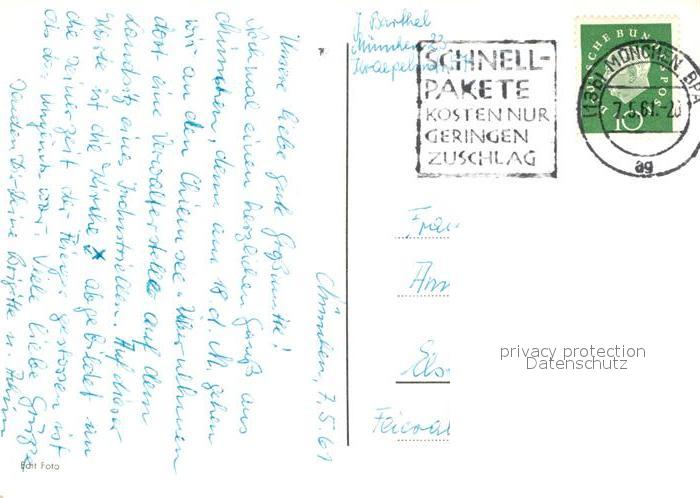 München, 7.5.61
Unsere liebe gute Großmutti!
Noch mal einen herzlichen Gruß aus
München, denn am 18. d. M. gehen
wir an den Chiemsee. Übernehmen
dort eine Verwalterstelle auf dem
Landsitz eines Industriellen. Auf dieser
Karte ist die Kirche x abgebildet an
die seinerzeit der Flieger gestossen ist
als das Unglück war. Viele liebe Grüße
senden Dir Deine Brigitte u. Achim
Echt Foto
J. Barthel
München 23
SCHNELL-
PAKETE
KOSTEN NUR
GERINGEN
ZUSCHLAG
DEUTSCHE BUNDESPOST
10
(13b) MÜNCHEN BPA
7.5.61.-20
ag
Frau
Ann
Feiera
privacy protection
Datenschutz